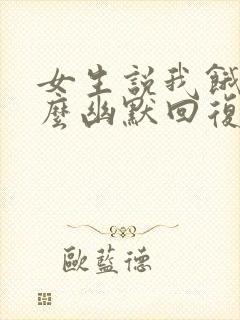 女生説我餓
麼幽默回復
歐藍德